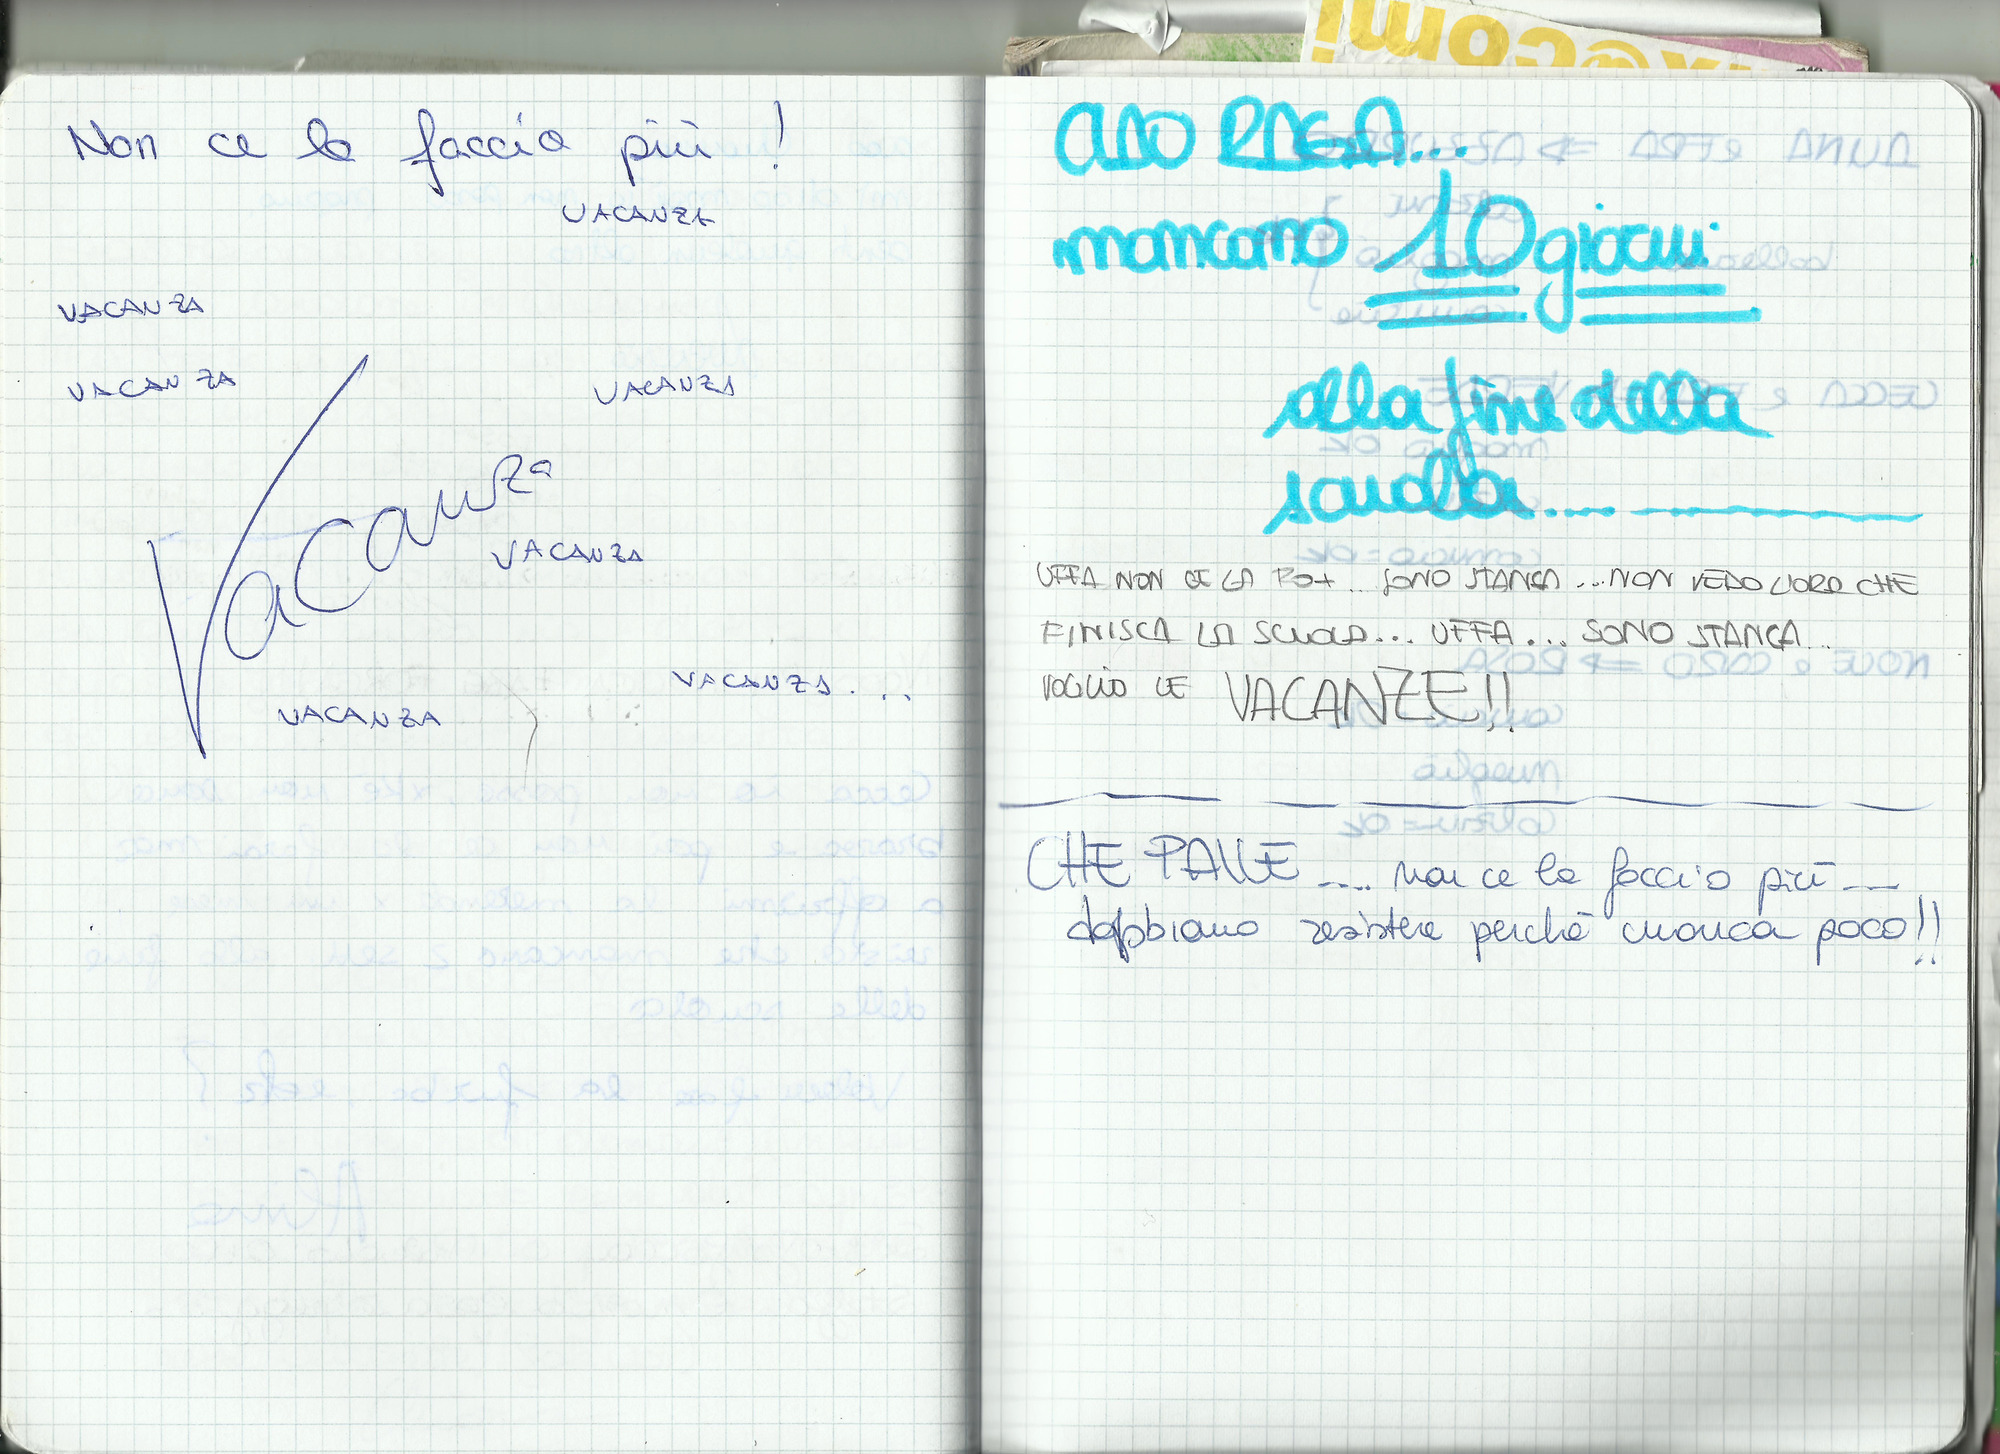 Non ce la faccio più!
VACANZA
VACANZA
VACANZA
VACANZA
Vacanza
VACANZA
VACANZA...
VACANZA
CIAO RAGA...
mancano 10 giorni
alla fine della
scuola....
UFFA NON CE LA FO + ... SONO STANCA ... NON VEDO L'ORA CHE
FINISCA LA SCUOLA... UFFA... SONO STANCA...
VOGLIO LE VACANZE!!
CHE PALLE .... non ce la faccio più ....
dobbiamo resistere perché manca poco!!